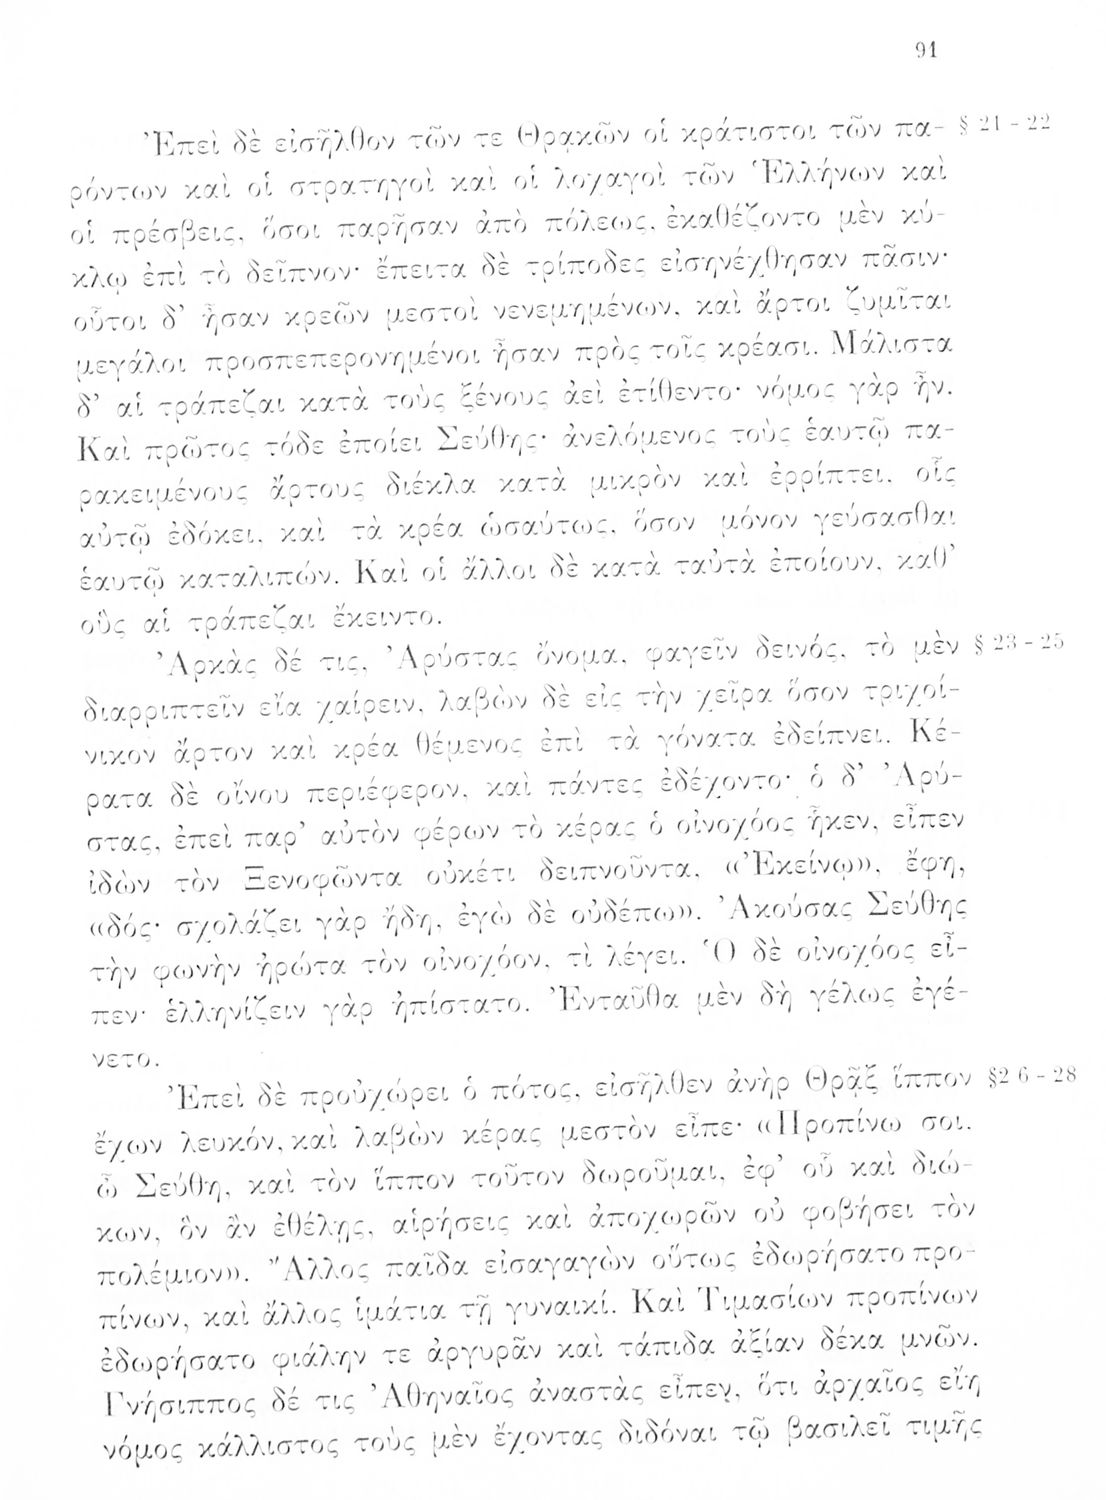 91
Ἐπεὶ δὲ εἰσῆλθον τῶν τε Θρᾳκῶν οἱ κράτιστοι τῶν πα- § 21 - 22
ρόντων καὶ οἱ στρατηγοὶ καὶ οἱ λοχαγοὶ τῶν Ἑλλήνων καὶ
οἱ πρέσβεις, ὅσοι παρῆσαν ἀπὸ πόλεως, ἐκαθέζοντο μὲν κύ-
κλῳ ἐπὶ τὸ δεῖπνον· ἔπειτα δὲ τρίποδες εἰσηνέχθησαν πᾶσιν·
οὗτοι δ’ ἦσαν κρεῶν μεστοὶ νενεμημένων, καὶ ἄρτοι ζυμῖται
μεγάλοι προσπεπερονημένοι ἦσαν πρὸς τοῖς κρέασι. Μάλιστα
δ’ αἱ τράπεζαι κατὰ τοὺς ξένους ἀεὶ ἐτίθεντο· νόμος γὰρ ἦν.
Καὶ πρῶτος τόδε ἐποίει Σεύθης· ἀνελόμενος τοὺς ἑαυτῷ πα-
ρακειμένους ἄρτους διέκλα κατὰ μικρὸν καὶ ἐρρίπτει, οἷς
αὐτῷ ἐδόκει, καὶ τὰ κρέα ὡσαύτως, ὅσον μόνον γεύσασθαι
ἑαυτῷ καταλιπών. Καὶ οἱ ἄλλοι δὲ κατὰ ταὐτὰ ἐποίουν, καθ’
οὓς αἱ τράπεζαι ἔκειντο.
Ἀρκὰς δέ τις, Ἀρύστας ὄνομα, φαγεῖν δεινός, τὸ μὲν § 23 - 25
διαρριπτεῖν εἴα χαίρειν, λαβὼν δὲ εἰς τὴν χεῖρα ὅσον τριχοί-
νικον ἄρτον καὶ κρέα θέμενος ἐπὶ τὰ γόνατα ἐδείπνει. Κέ-
ρατα δὲ οἴνου περιέφερον, καὶ πάντες ἐδέχοντο· ὁ δ’ Ἀρύ-
στας, ἐπεὶ παρ’ αὐτὸν φέρων τὸ κέρας ὁ οἰνοχόος ἧκεν, εἶπεν
ἰδὼν τὸν Ξενοφῶντα οὐκέτι δειπνοῦντα, «Ἐκείνῳ», ἔφη,
«δός· σχολάζει γὰρ ἤδη, ἐγὼ δὲ οὐδέπω». Ἀκούσας Σεύθης
τὴν φωνὴν ἠρώτα τὸν οἰνοχόον, τὶ λέγει. Ὁ δὲ οἰνοχόος εἶ-
πεν· ἑλληνίζειν γὰρ ἠπίστατο. Ἐνταῦθα μὲν δὴ γέλως ἐγέ-
νετο.
Ἐπεὶ δὲ προὐχώρει ὁ πότος, εἰσῆλθεν ἀνὴρ Θρᾷξ ἵππον §26 - 28
ἔχων λευκόν, καὶ λαβὼν κέρας μεστὸν εἶπε· «Προπίνω σοι,
ὦ Σεύθη, καὶ τὸν ἵππον τοῦτον δωροῦμαι, ἐφ’ οὗ καὶ διώ-
κων, ὃν ἂν ἐθέλῃς, αἱρήσεις καὶ ἀποχωρῶν οὐ φοβήσει τὸν
πολέμιον». Ἄλλος παῖδα εἰσαγαγὼν οὕτως ἐδωρήσατο προ-
πίνων, καὶ ἄλλος ἱμάτια τῇ γυναικί. Καὶ Τιμασίων προπίνων
ἐδωρήσατο φιάλην τε ἀργυρᾶν καὶ τάπιδα ἀξίαν δέκα μνῶν.
Γνήσιππος δέ τις Ἀθηναῖος ἀναστὰς εἶπεν, ὅτι ἀρχαῖος εἴη
νόμος κάλλιστος τοὺς μὲν ἔχοντας διδόναι τῷ βασιλεῖ τιμῆς